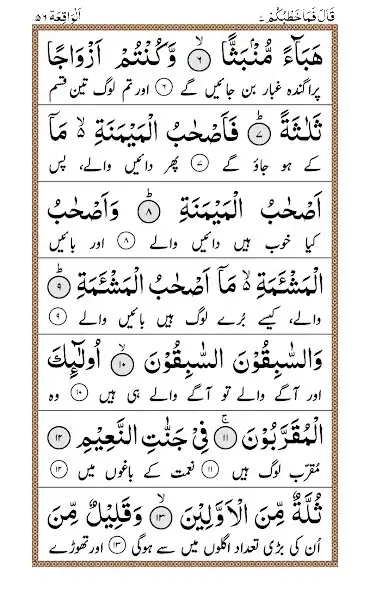 قَالَ فَمَا خَطْبُكُمْ ٢٧ اَلْوَاقِعَة ٥٦
هَبَآءً مُّنْۢبَثًّا ۙ﴿٦﴾ وَّكُنْتُمْ اَزْوَاجًا
پراگندہ غبار بن جائیں گے ﴿٦﴾ اور تم لوگ تین قسم
ثَلٰثَةً ؕ﴿٧﴾ فَاَصْحٰبُ الْمَيْمَنَةِ ۙ مَاۤ
کے ہو جاؤ گے ﴿٧﴾ پھر دائیں والے، پس
اَصْحٰبُ الْمَيْمَنَةِ ؕ﴿٨﴾ وَاَصْحٰبُ
کیا خوب ہیں دائیں والے ﴿٨﴾ اور بائیں
الْمَشْـَٔمَةِ ۙ مَاۤ اَصْحٰبُ الْمَشْـَٔمَةِ ؕ﴿٩﴾
والے، کیسے بُرے لوگ ہیں بائیں والے ﴿٩﴾
وَالسّٰبِقُوْنَ السّٰبِقُوْنَ ۙ﴿١٠﴾ اُولٰٓئِكَ
اور آگے والے تو آگے والے ہی ہیں ﴿١٠﴾ وہ
الْمُقَرَّبُوْنَ ۚ﴿١١﴾ فِيْ جَنّٰتِ النَّعِيْمِ ﴿١٢﴾
مقرّب لوگ ہیں ﴿١١﴾ نعمت کے باغوں میں ﴿١٢﴾
ثُلَّةٌ مِّنَ الْاَوَّلِيْنَ ۙ﴿١٣﴾ وَقَلِيْلٌ مِّنَ
اُن کی بڑی تعداد اگلوں میں سے ہوگی ﴿١٣﴾ اور تھوڑے